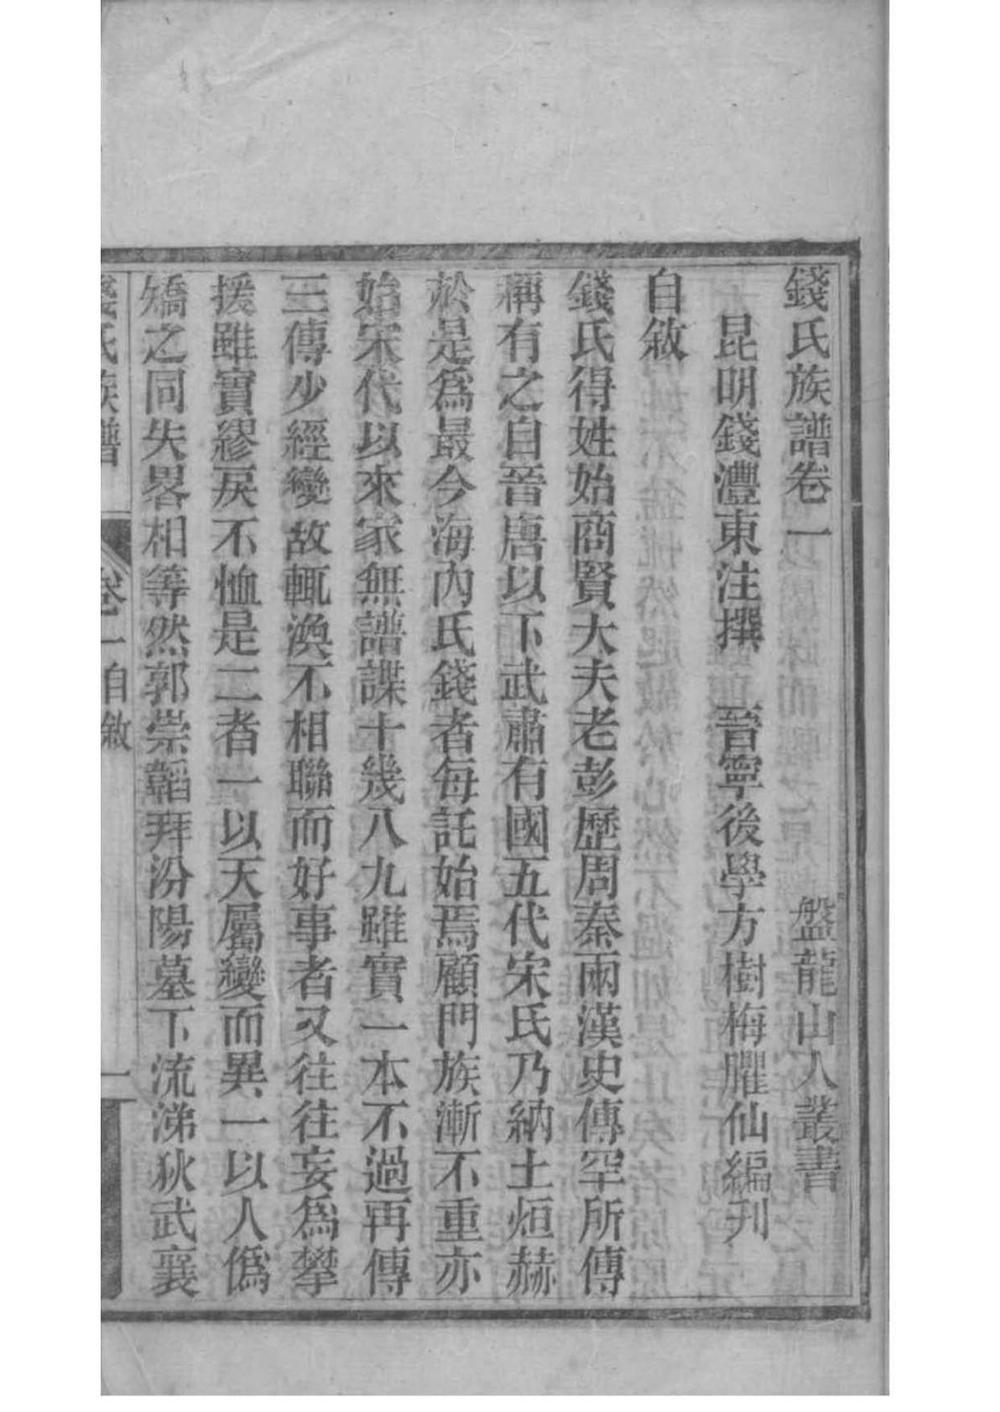 錢氏族譜卷一　盤龍山人叢書
昆明錢灃東注撰　晉寧後學方樹梅臞仙編刊
自敘
錢氏得姓始商賢大夫老彭歷周秦兩漢史傳罕所傳
稱有之自晉唐以下武肅有國五代宋氏乃納土烜赫
於是爲最今海內氏錢者每託始焉顧門族漸不重亦
始宋代以來家無譜諜十幾八九雖實一本不過再傳
三傳少經變故輒渙不相聯而好事者又往往妄爲攀
援雖實繆戾不恤是二者一以天屬變而異一以人僞
矯之同失畧相等然郭崇韜拜汾陽墓下流涕狄武襄
錢氏族譜　卷一自敘　一